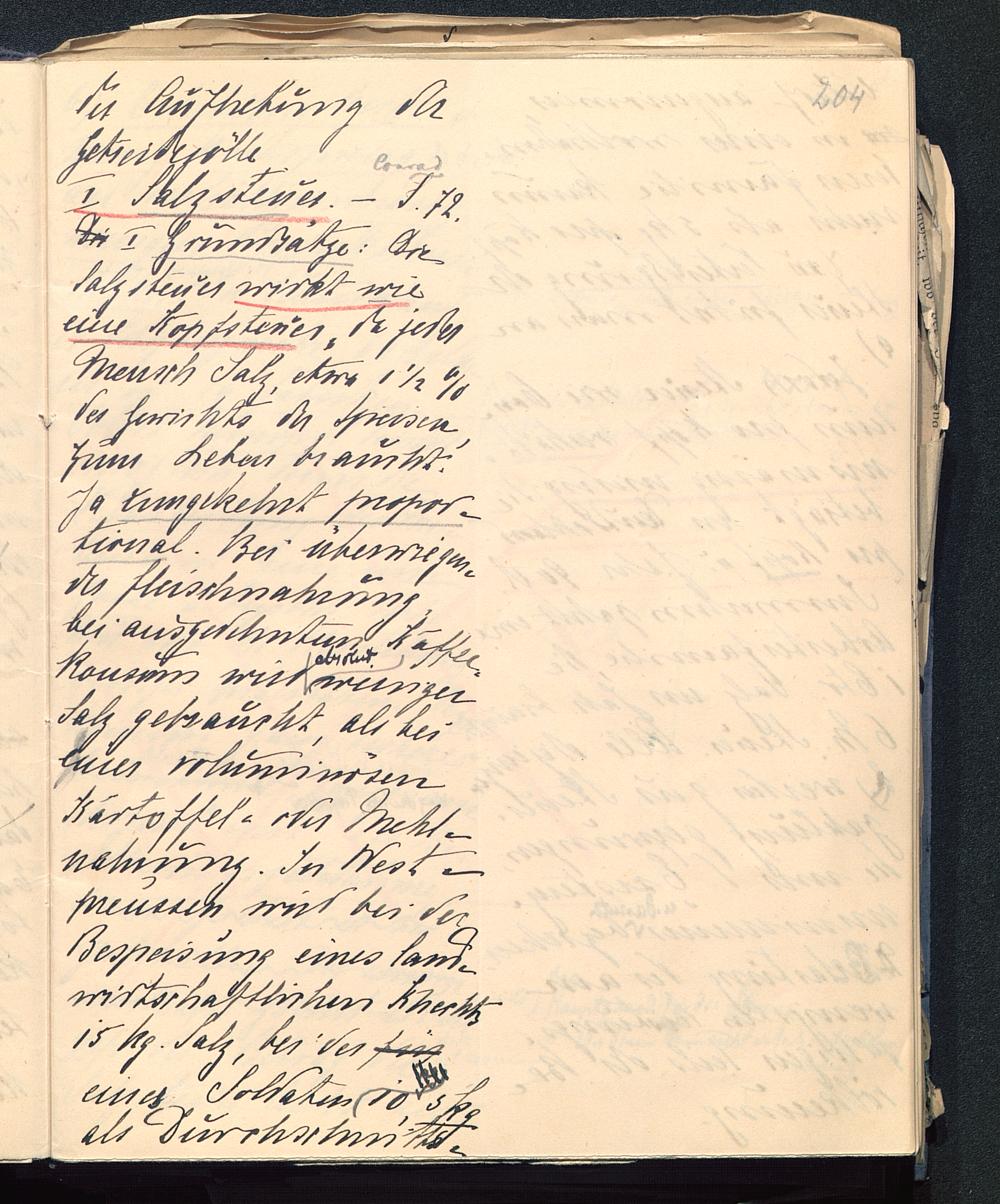 204
der Aufhebung der
Getreidezölle
Conrad
I Salzsteuer. — S. 72.
Die I Grundsätze: Die
Salzsteuer wirkt wie
eine Kopfsteuer, da jeder
Mensch Salz, etwa 1 1/2 %
des Gewichts der Speisen,
zum Leben braucht.
Ja umgekehrt propor-
tional. Bei überwiegen-
der Fleischnahrung,
bei ausgedehntem Kaffee-
konsum wird absolut weniger
Salz gebraucht, als bei
einer voluminösen
Kartoffel- oder Mehl-
nahrung. In West-
preussen wird bei der
Bespeisung eines land-
wirtschaftlichen Knechts
15 kg. Salz, bei der für
eines Soldaten 10 kg
als Durchschnitts-